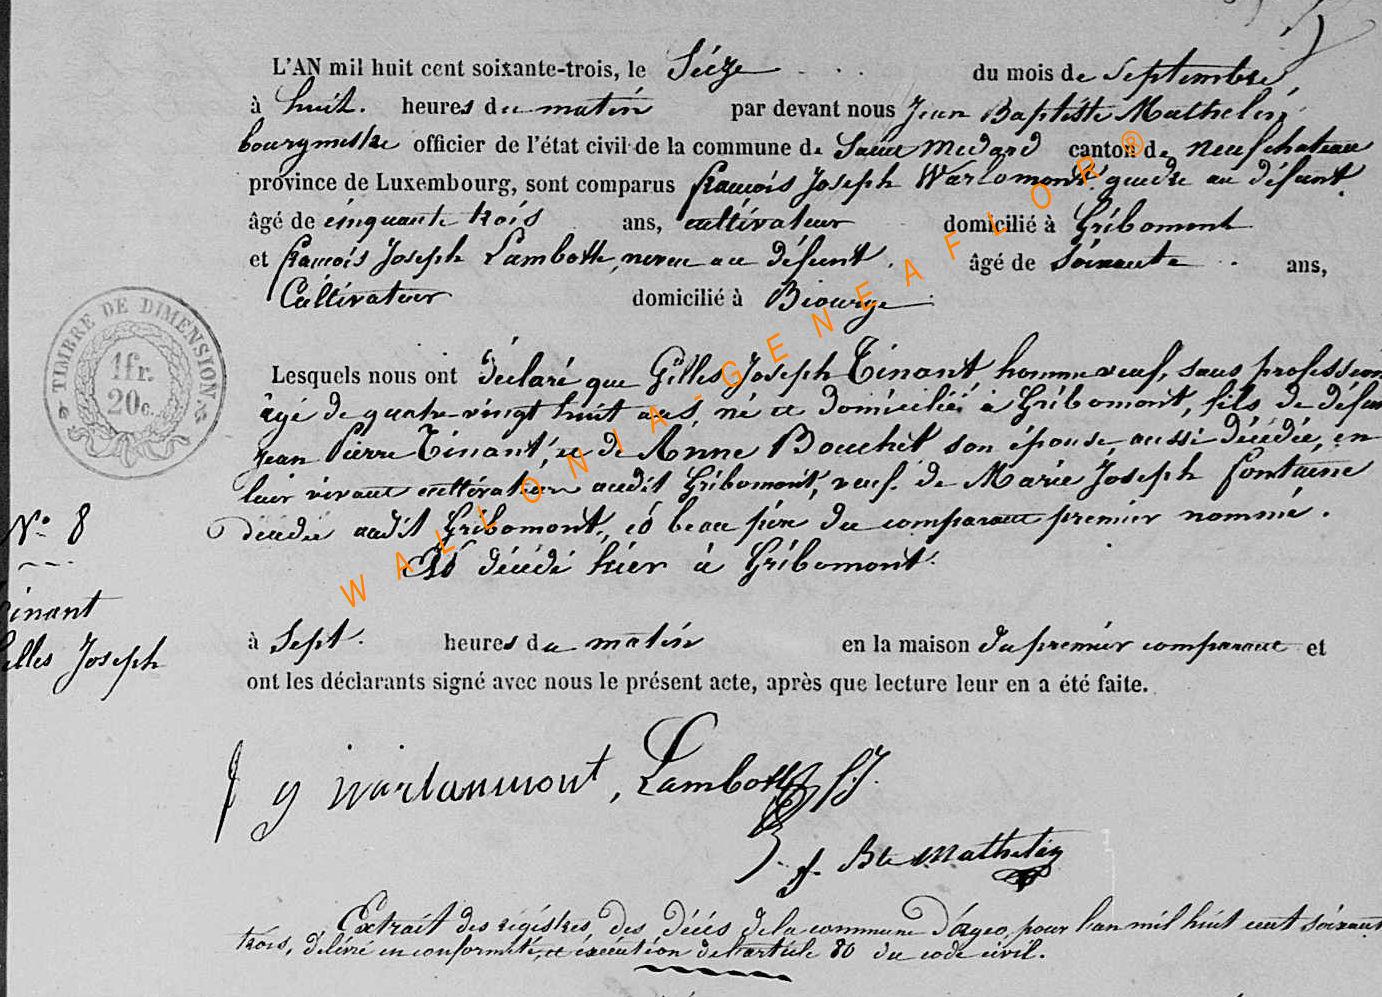 L'AN mil huit cent soixante-trois, le Séize du mois de Septembre
à huit heures du matin par devant nous Jean Baptiste Mathelin
bourgmestre officier de l'état civil de la commune de Saint Médard canton de neufchateau
province de Luxembourg, sont comparus francois Joseph Warlomont gendre au défunt
âgé de cinquante trois ans, cultivateur domicilié à Gribomont
et francois Joseph Lambotte, neveu au défunt, âgé de Soixante ans,
Cultivateur domicilié à Biourge
TIMBRE DE DIMENSION
1fr.
20c.
Lesquels nous ont déclaré que Gilles Joseph Tinant homme veuf, sans profession
âgé de quatre vingt huit ans, né et domicilié à Gribomont, fils de défunt
Jean Pierre Tinant, et de Anne Bouchet son épouse, aussi décédée, en
leur vivant cultivateurs audit Gribomont, veuf de Marie Joseph fontaine
décédée audit Gribomont, et beau père du comparant premier nommé.
Est décédé hier à Gribomont.
N° 8
inant
illes Joseph
à Sept heures du matin en la maison du premier comparant et
ont les déclarants signé avec nous le présent acte, après que lecture leur en a été faite.
f j warlaumont, Lambotte f.J.
J. Bte Mathelin
Extrait des régistres des décés de la commune d'orgeo, pour l'an mil huit cent soixante
trois, délivré en conformité, et éxécution de l'article 80 du code civil.
WALLONIA-GENEAFLOR®